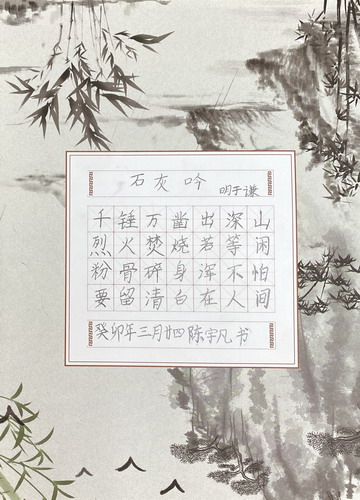 石灰吟 明于谦
千锤万凿出深山
烈火焚烧若等闲
粉骨碎身浑不怕
要留清白在人间
癸卯年三月廿四陈宇凡书